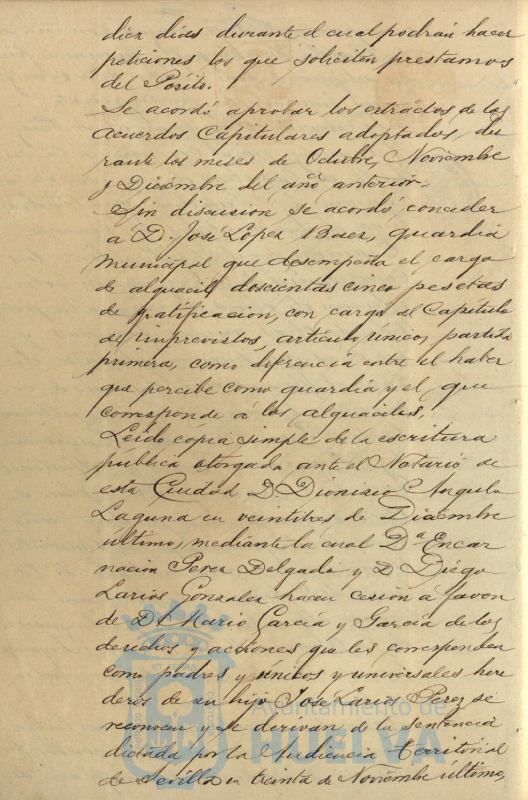 diez dias durante el cual podrán hacer
peticiones los que soliciten prestamos
del Pósito.
Se acordó aprobar los extractos de los
acuerdos Capitulares adoptados du
rante los meses de Octubre, Noviembre
y Diciembre del año anterior.
Sin discusión se acordó conceder
a D. José López Baez, guardia
municipal que desempeña el cargo
de alguacil doscientas cinco pesetas
de gratificacion, con cargo al Capitulo
de imprevistos, articulo único, partida
primera, como diferencia entre el haber
que percibe como guardia y el que
corresponde a los alguaciles.
Leido copia simple de la escritura
pública otorgada ante el Notario de
esta Ciudad D. Dionisio Angulo
Laguna en veintitres de Diciembre
ultimo, mediante la cual Dª Encar
nacion Perez Delgado y D Diego
Larios Gonzalez hacen cesión a favor
de D. Mario García y García de los
derechos y acciones que les corresponden
como padres y únicos y universales here
deros de su hijo José Larios Perez se
reconocen y se derivan de la sentencia
dictada por la Audiencia Territorial
de Sevilla en treinta de Noviembre ultimo,
Ayuntamiento de
HUELVA